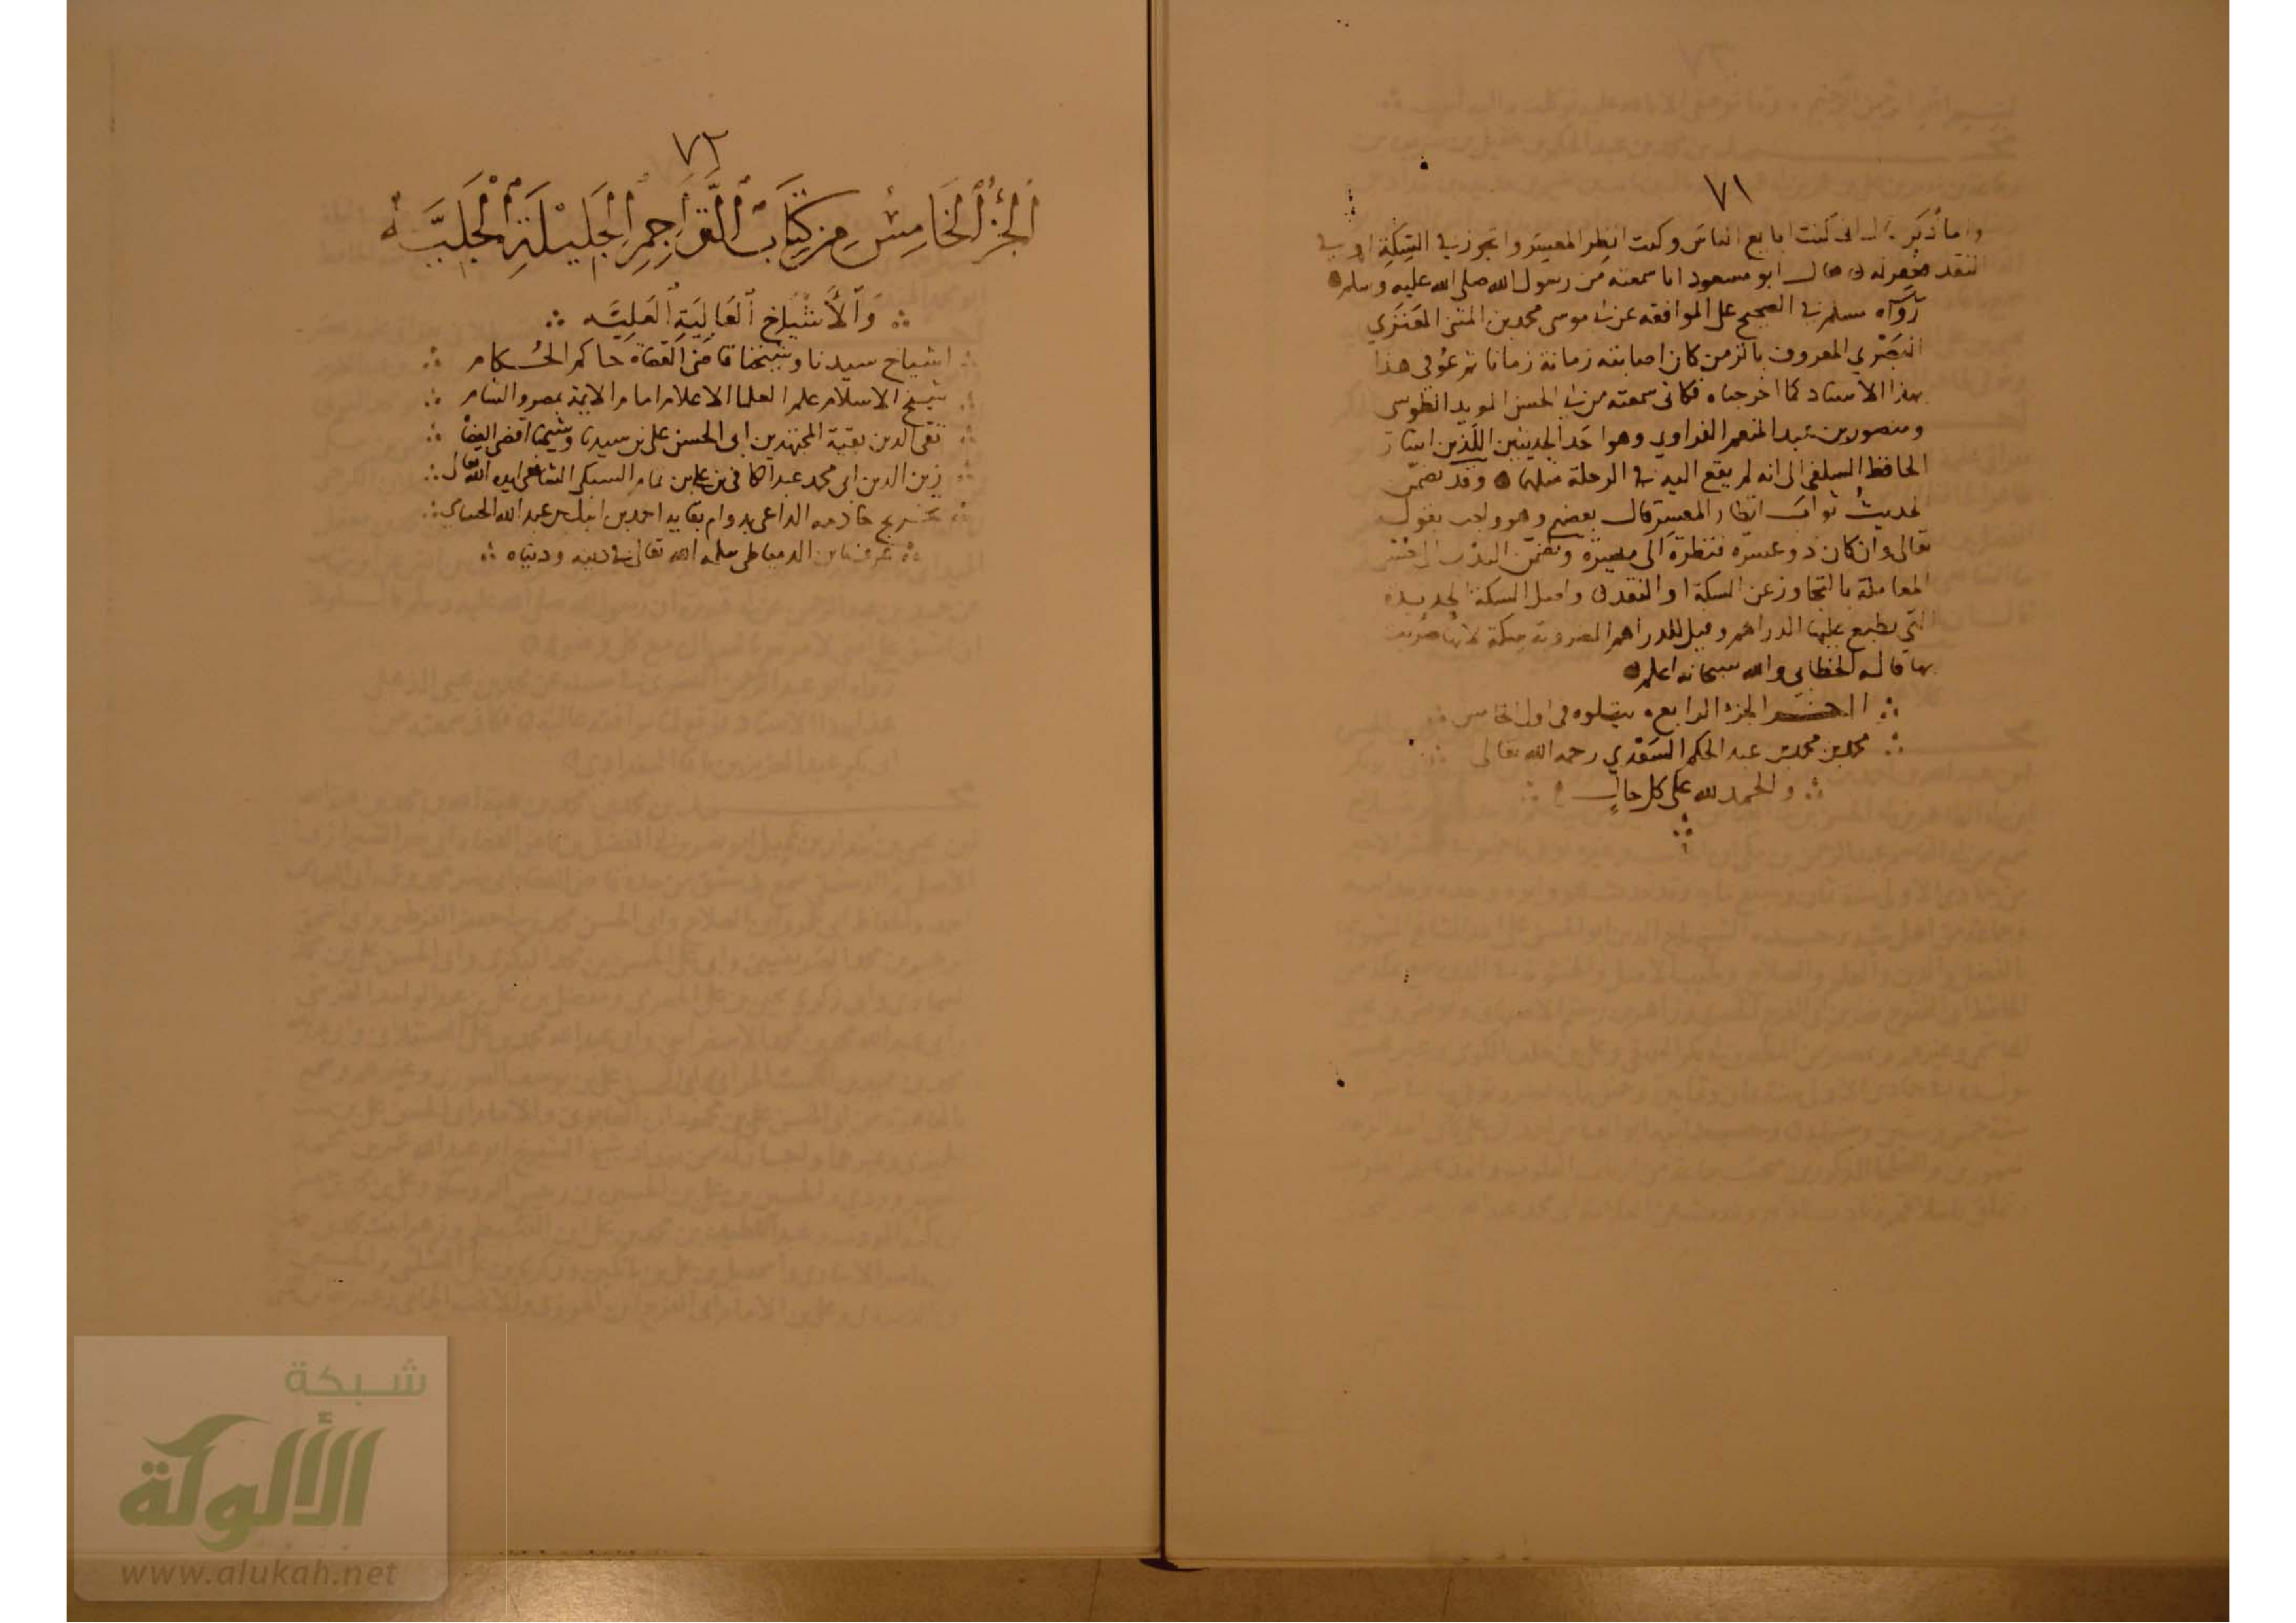 ٧١
واما ذكر قال انى كنت ابايع الناس وكنت انظر المعسر واتجوز فى السكة او فى
النقد فغفر له قال ابو مسعود انا سمعته من رسول الله صلى الله عليه وسلم
رواه مسلم فى الصحيح على الموافقة عن ابى موسى محمد بن المثنى العنزي
البصري المعروف بالزمن كان اصابته زمانة زمانا ثم عوفي هذا
بهذا الاسناد كما اخرجناه فكانى سمعته من ابى الحسن المويد الطوسي
ومنصور بن عبد المنعم الفراوي وهو احد الحديثين اللذين اشار
الحافظ السلفي الى انه لم يقع اليه فى الرحلة مثلهما وقد تضمن
الحديث ثواب انظار المعسر قال بعضهم وهو واجب بقوله
تعالى وان كان ذو عسرة فنظرة الى ميسرة وتضمن الندب الى حسن
المعاملة بالتجاوز عن السكة او النقد واصل السكة الحديدة
التي يطبع عليها الدراهم وقيل للدراهم المضروبة سكة لانها ضربت
بها قاله الخطابي والله سبحانه اعلم
اخر الجزء الرابع يتلوه فى اول الخامس
محمد بن محمد بن عبد الحكم السعدي رحمه الله تعالى
والحمد لله على كل حال
٧٢
الجزء الخامس من كتاب التراجم الجليلة الجلية
والأشياخ العالية العلية
اشياخ سيدنا وشيخنا قاضى القضاة حاكم الحكام
شيخ الاسلام علم العلما الاعلام امام الايمة بمصر والشام
تقى الدين بقية المجتهدين ابى الحسن على بن سيدنا وشيخنا اقضى القضاة
زين الدين ابى محمد عبد الكافى بن على بن تمام السبكى الشافعى ايده الله تعالى
تخريج خادمه الداعى بدوام بقايه احمد بن ايبك بن عبد الله الحسامي
عرف بابن الدمياطى سلمه الله تعالى فى دينه ودنياه
شبكة
الألوكة
www.alukah.net